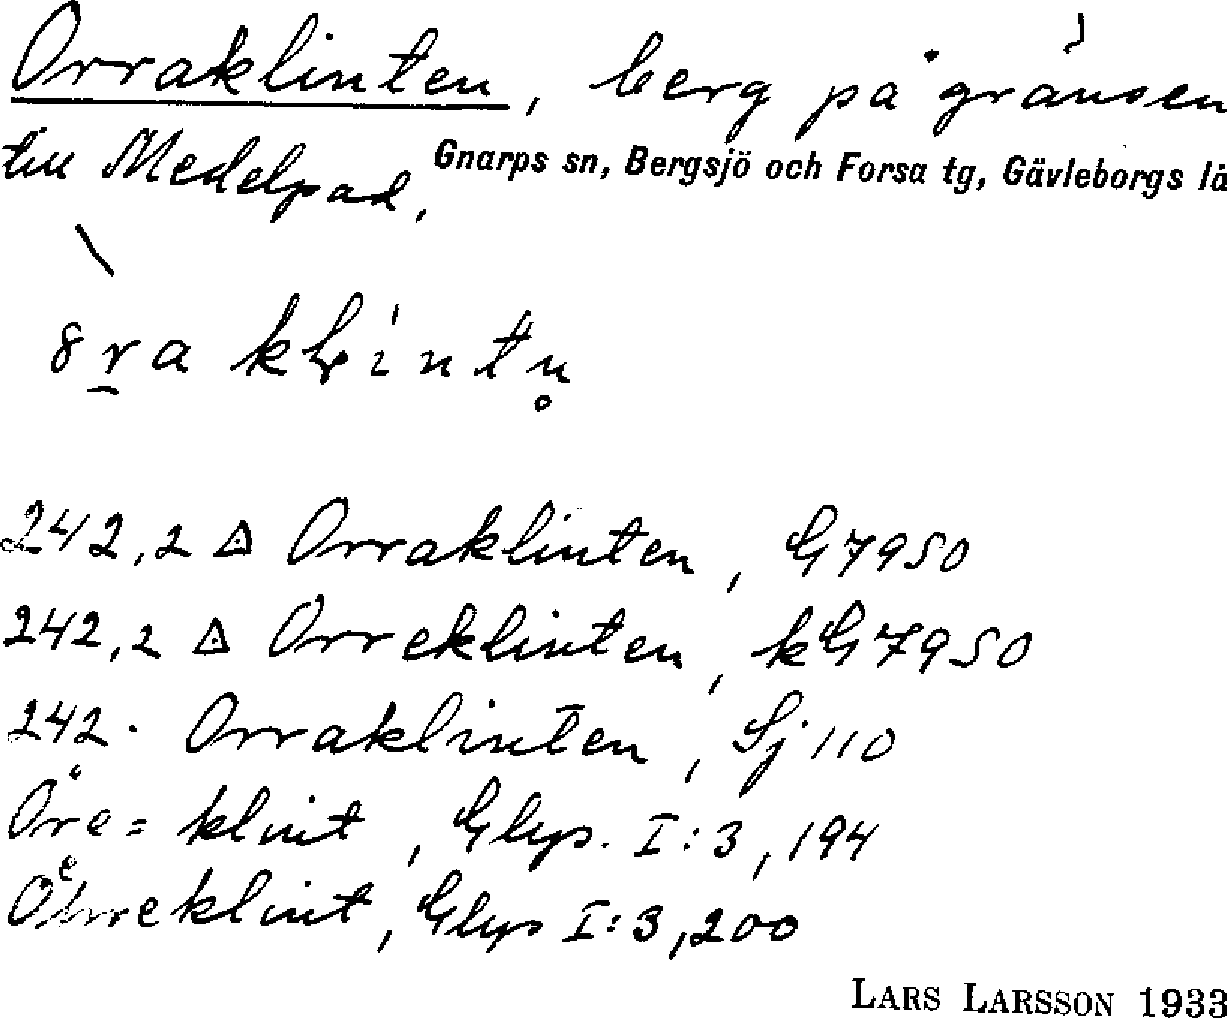 Orraklinten, berg på gränsen
till Medelpad,
Gnarps sn, Bergsjö och Forsa tg, Gävleborgs lä
242,2 △ Orraklinten, G 7950
242,2 △ Orreklinten, kG 7950
242. Orraklinten, Sj 110
Öre=klint, Glys. I:3, 194
klint, Glys I:3, 200
LARS LARSSON 1933